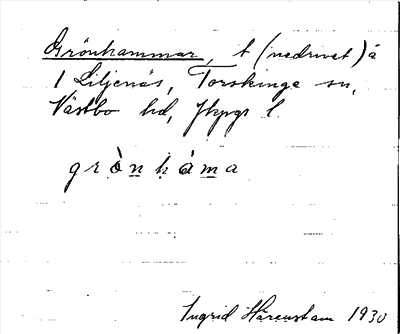 Grönhammar, t (nedrivet) å
1 Liljenäs, Torskinge sn,
Västbo hd, Jkpgs l.
grònhàma
Ingrid Härenstam 1930